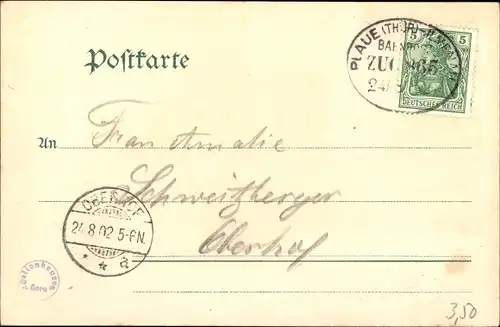 Postkarte
PLAUE (THÜR)-ILMENAU
BAHNPOST
ZUG
5 5
DEUTSCHES REICH
An
Frau Amalie
Schweitzberger
Oberhof
OBERHOF
24.8.02 5-6N.
* * a
Gera
3,50